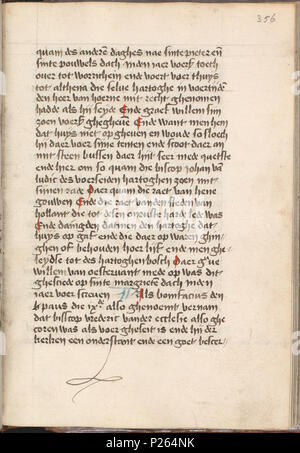 356
quam des anderē daghes nae sinte peter eñ
sinte pouwels dach men iaer voerß toech
over tot worrichem ende voert voer thuys
tot althena die selue hartoghe in voertiden
den heer van hoerne mit recht ghenomen
hadde als hi seyde Ende graef willem sin
zoen voerß gheghevē Ende want men hem
dat huys niet op gheven en woude so sloech
hi daer voer sine tenten ende scoet daer an
mit steen bussen daer hijt seer mede quetste
ende hier om so quam die bisscop johan vā
ludic des voerseiden hartoghen zoen mit
sinen rade Daer quam die raet van hene
gouwen Ende die raet van den steden van
hollant die tot desen onruste harde leet was
Ende daingden dat men den hartoghe dat
huys op gaf ende die daer op waren ghin
ghen of behouden hoer lijf ende men ghe
leydse tot des hartoghenbosch Daer grve
willem van oestervant mede op was dit
ghesciede op sinte margrietē dach men
iaer voer screven Als bonifacius den
paus die ixᵉ also ghenoemt vernam
dat bisscop vrederic vander ecclesie also ghe
coren was als voer gheseit is ende hi der
kerken een onderstant ende een goet bescer
alamy
P264NK